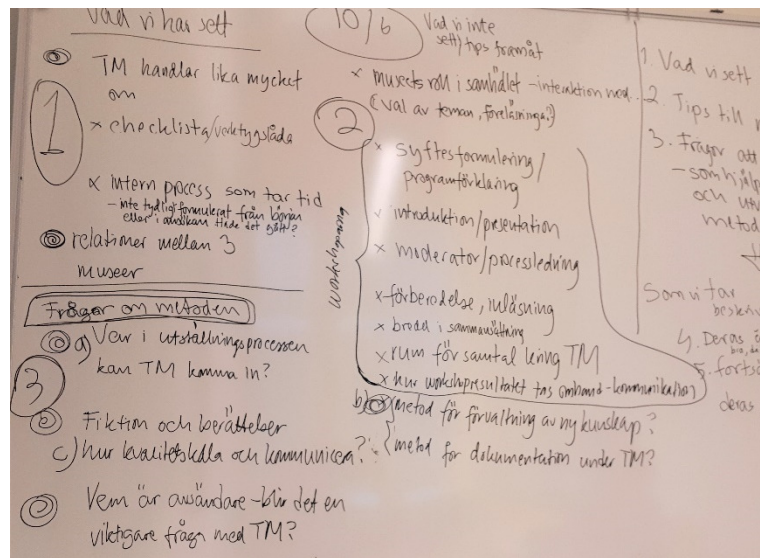 Vad vi har sett
TM handlar lika mycket
om
1
x checklista/verktygslåda
x intern process som tar tid
- inte tydligt formulerat från början
eller i ansökan
relationer mellan 3
museer
Frågor om metoden
3
a) Var i utställningsprocessen
kan TM komma in?
Fiktion och berättelser
c) hur kvalitetskälla och kommunicera?
Vem är användare - blir det en
viktigare fråga med TM?
10/6
Vad vi inte
sett/tips framåt
x museets roll i samhället - interaktion med...
(val av teman, föreläsninga?)
2
workshoparna
x syftesformulering/
programförklaring
x introduktion/presentation
x moderator/processledning
x förberedelse, inläsning
x bredd i sammansättning
x rum för samtal kring TM
x hur workshopresultatet tas omhand - kommunikation
b) x metod för förvaltning av ny kunskap?
metod för dokumentation under TM?
1. Vad vi sett
2. Tips till
3. Frågor att
- som hjälp
och
metod
Som vi tar
beskriv
4. Deras
5. forts
deras